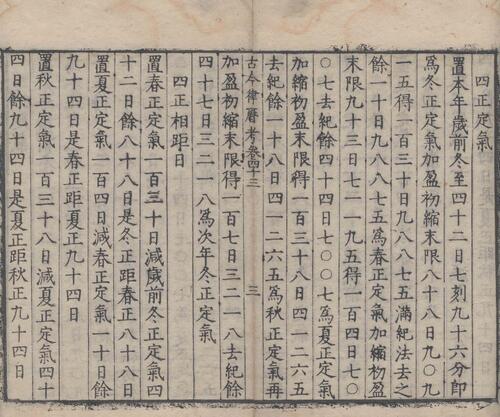 四正定氣
置本年歲前冬至四十二日七刻九十六分即
爲冬正定氣加盈初縮末限八十八日九〇九
一五得一百三十日九八八七五滿紀法去之
餘一十日九八八七五爲春正定氣加縮初盈
末限九十三日七一一九五得一百四日七〇
〇七去紀餘四十四日七〇〇七爲夏正定氣
加縮初盈末限得一百三十八日四一二六五
去紀餘一十八日四一二六五爲秋正定氣再
古今律曆考卷四十三 三
加盈初縮末限得一百七日三二一八去紀餘
四十七日三二一八爲次年冬正定氣
四正相距日
置春正定氣一百三十日減歲前冬正定氣四
十二日餘八十八日是冬正距春正八十八日
置夏正定氣一百四日減春正定氣一十日餘
九十四日是春正距夏正九十四日
置秋正定氣一百三十八日減夏正定氣四十
四日餘九十四日是夏正距秋正九十四日